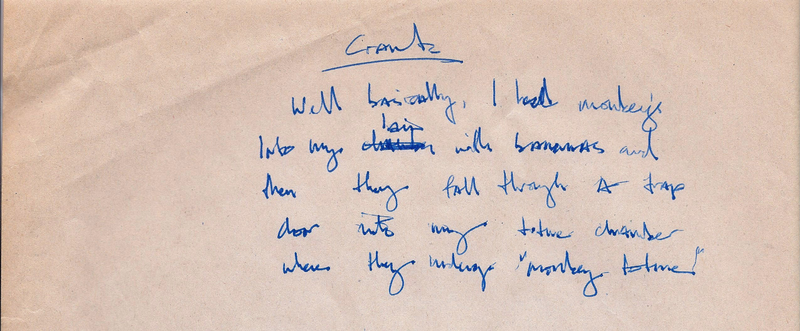 Crantz
Well basically, I lead monkeys
lair
Into my with bananas and
then they fall through a trap
door into my torture chamber
where they undergo "monkey torture"